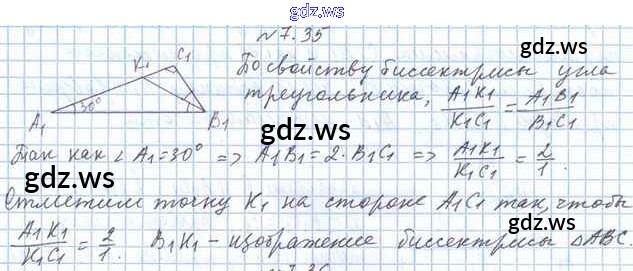 gdz.ws
№7.35
gdz.ws
K₁ C₁
30°
A₁ B₁
По свойству биссектрисы угла
треугольника, A₁K₁/K₁C₁ = A₁B₁/B₁C₁
gdz.ws
Так как ∠A₁=30° => A₁B₁=2·B₁C₁ => A₁K₁/K₁C₁ = 2/1.
gdz.ws
Отметим точку K₁ на стороне A₁C₁ так, чтобы
A₁K₁/K₁C₁ = 2/1. B₁K₁ – изображение биссектрисы △ABC.
gdz.ws
gdz.ws
№7.36